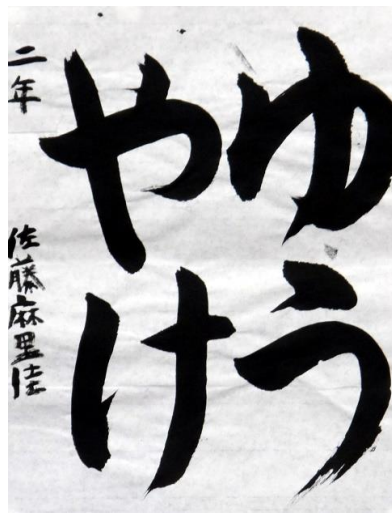 ゆう
やけ
二年 佐藤麻里佳